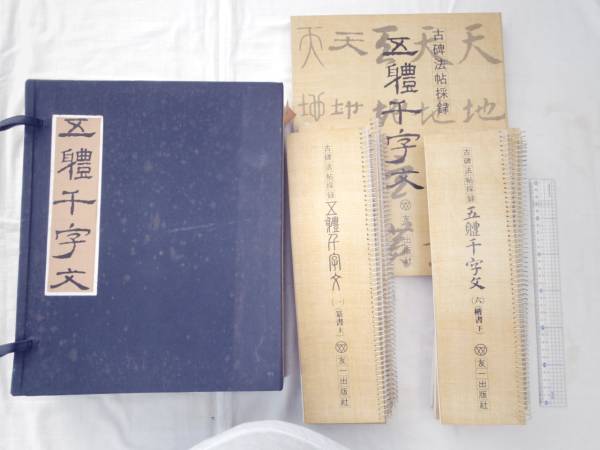 五體千字文
古碑法帖採録
五體千字文
友一出版社
天地
天地
天地
天地
天地
古碑法帖採録
五體千字文
(一)篆書上
友一出版社
古碑法帖採録
五體千字文
(六)楷書下
友一出版社